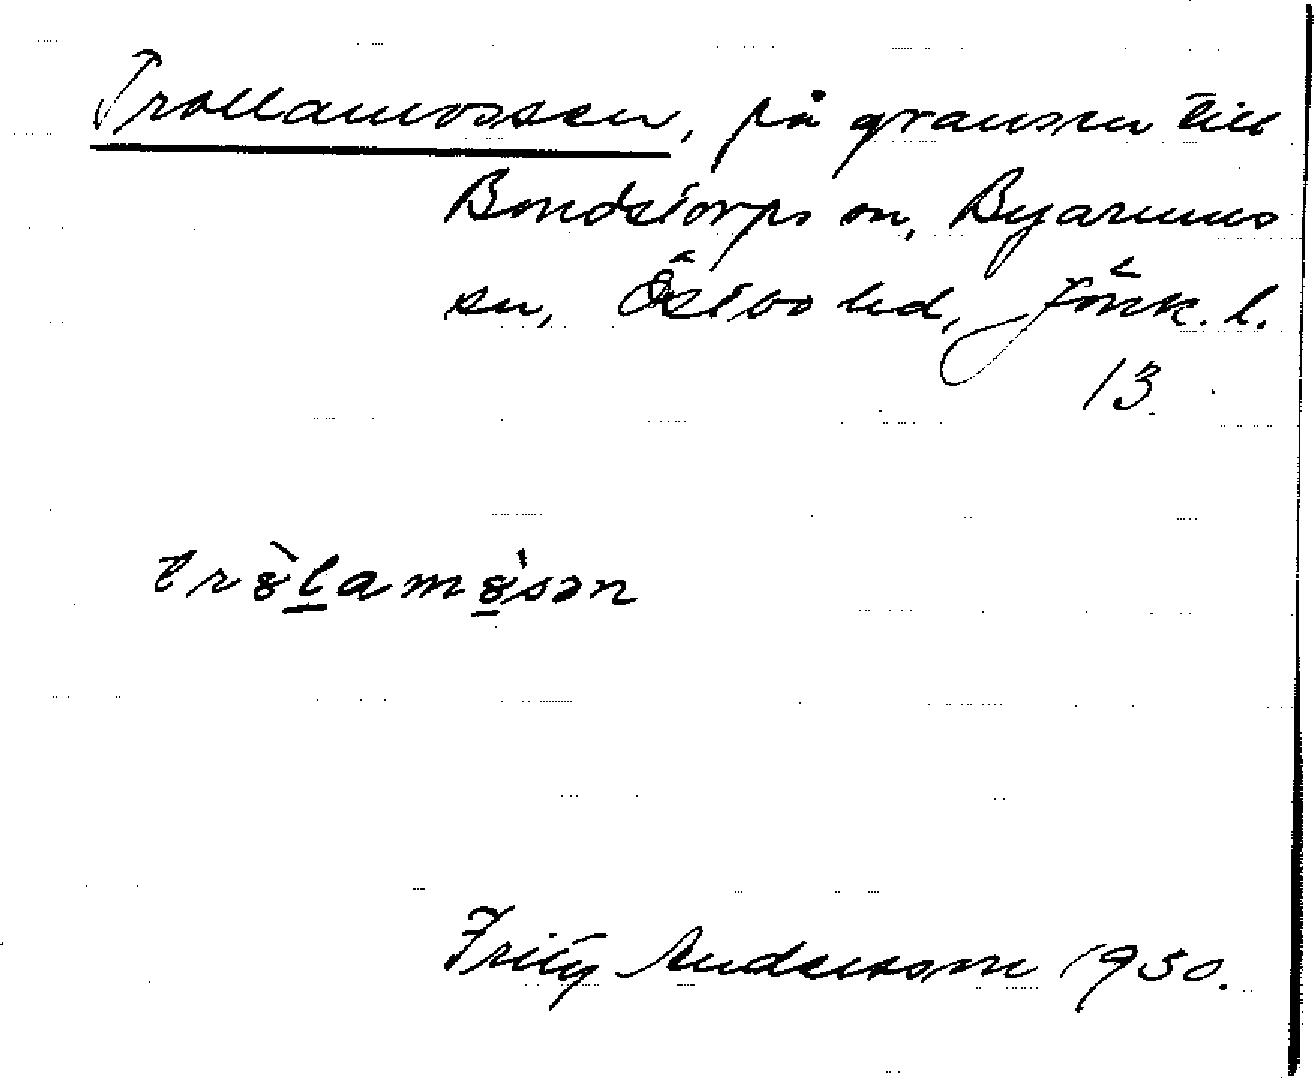 Trollamossen, på gränsen till
Bondstorps sn, Byarums
sn, Östbo hd, Jönk. l.
13.
tr8̀l̲am8̲̀sən
Fritz Andersson 1930.